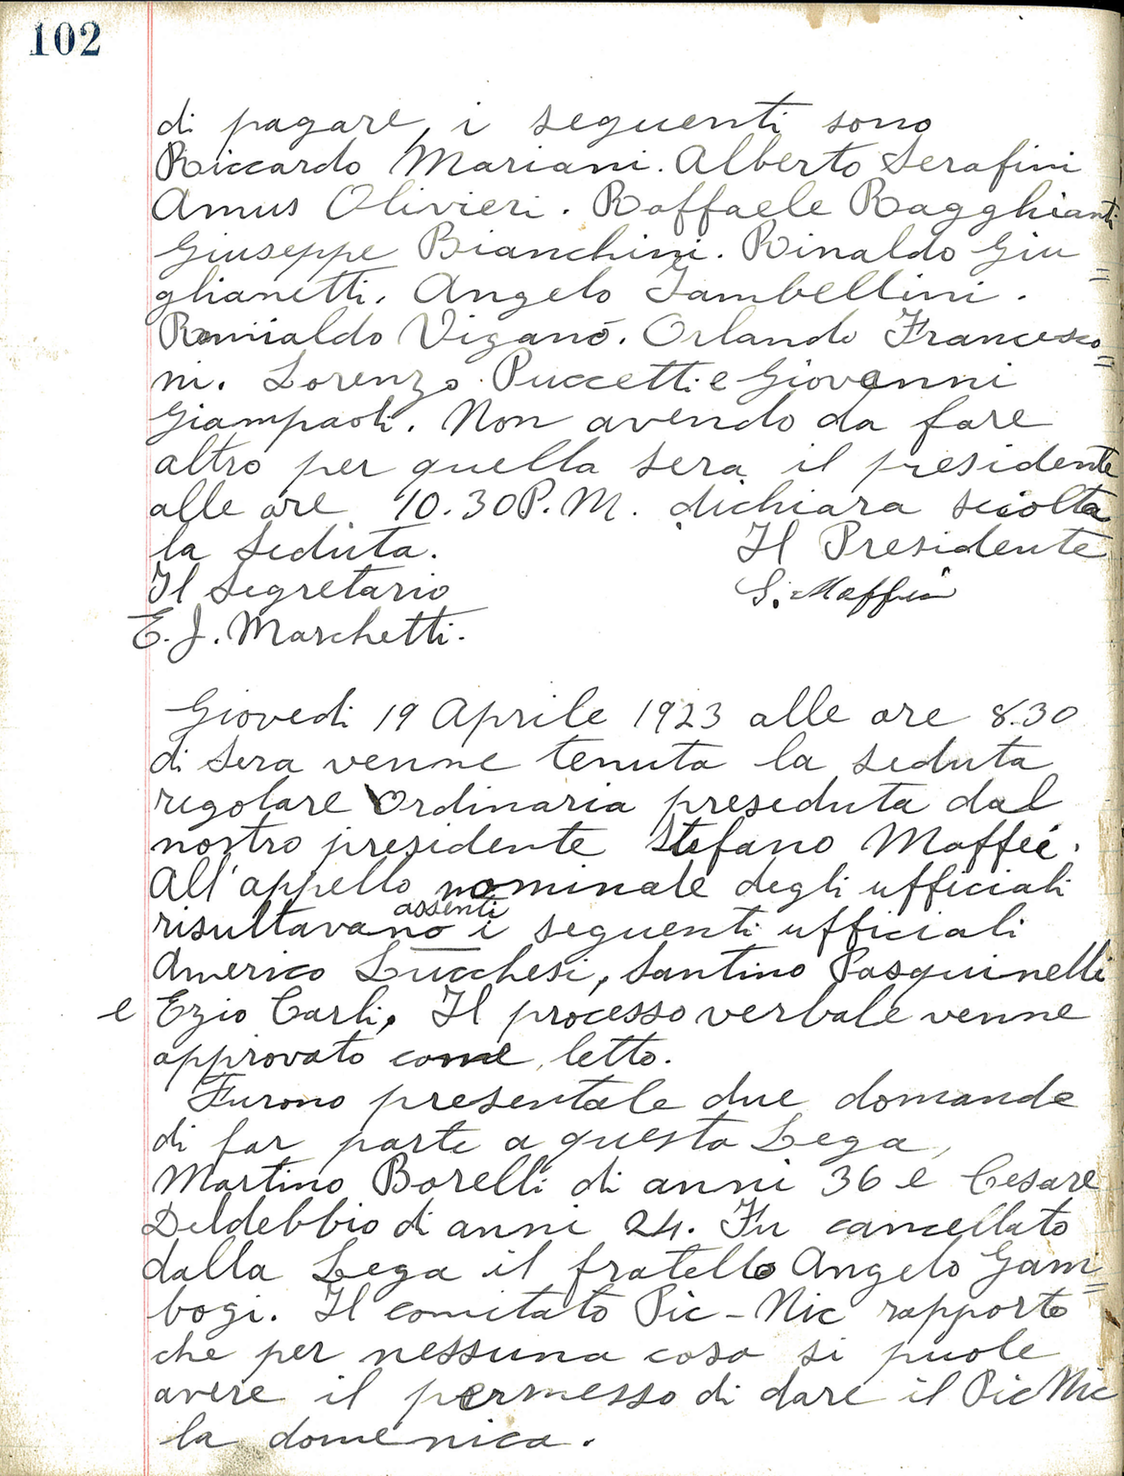 102
di pagare, i seguenti sono
Riccardo Mariani. Alberto Serafini
Amus Olivieri. Raffaele Ragghianti
Giuseppe Bianchini. Rinaldo Giu=
glianetti. Angelo Tambellini.
Romialdo Viganó. Orlando Francesco=
ni. Lorenzo Puccetti e Giovanni
Giampaoli. Non avendo da fare
altro per quella sera il presidente
alle ore 10.30 P.M. dichiara sciolta
la seduta. Il Presidente
Il Segretario S. Maffei
E. J. Marchetti.
Giovedi 19 Aprile 1923 alle ore 8.30
di sera venne tenuta la seduta
regolare Ordinaria preseduta dal
nostro presidente Stefano Maffei.
All'appello nominale degli ufficiali
risultavano assenti i seguenti ufficiali
Americo Lucchesi, Santino Pasquinelli
e Ezio Carli. Il processo verbale venne
approvato come letto.
Furono presentate due domande
di far parte a questa Lega,
Martino Borelli di anni 36 e Cesare
Deldebbio di anni 24. Fu cancellato
dalla Lega il fratello Angelo Gam=
bogi. Il comitato Pic-Nic rapporto
che per nessuna cosa si puole
avere il permesso di dare il Pic Nic
la domenica.